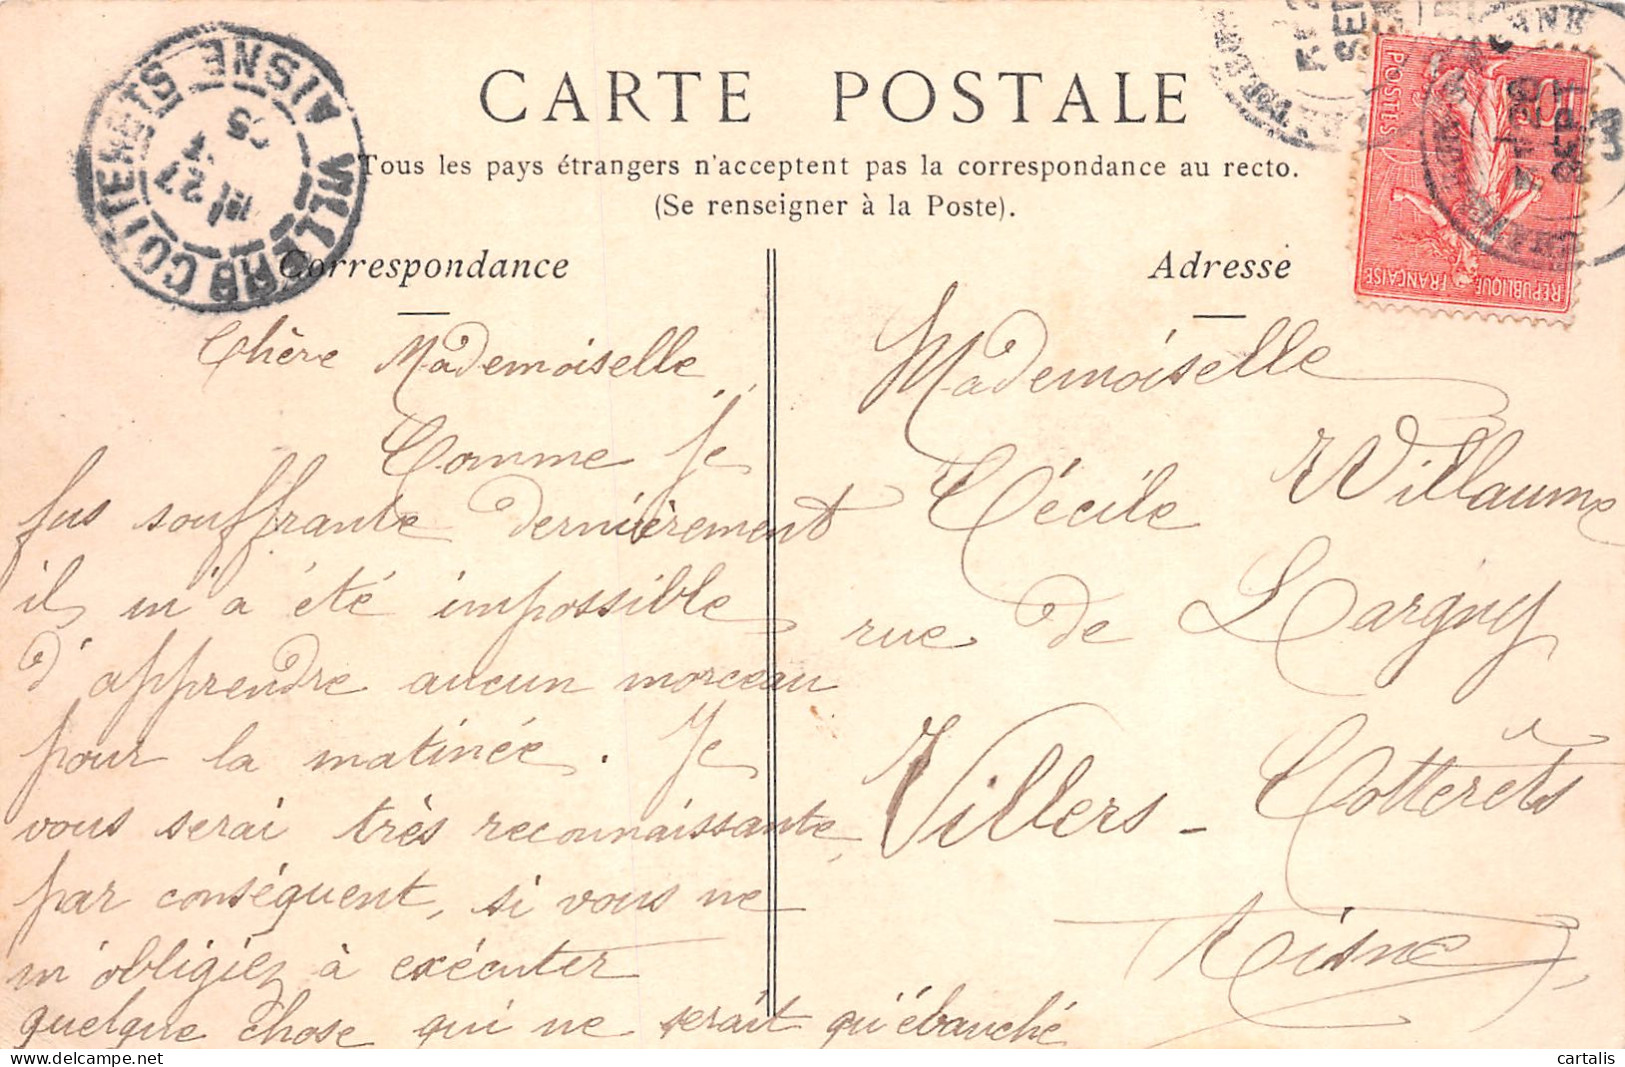 CARTE POSTALE
Tous les pays étrangers n'acceptent pas la correspondance au recto.
(Se renseigner à la Poste).
Correspondance
Chère Mademoiselle
Comme je
fus souffrante dernièrement
il m'a été impossible
d'apprendre aucun morceau
pour la matinée. Je
vous serai très reconnaissante,
par conséquent, si vous ne
m'obligiez à exécuter
quelque chose qui ne serait qu'ébauché
Adresse
Mademoiselle
Cécile Willaume
rue de Largny
Villers-Cotterêts
Aisne
VILLERS COTTERETS AISNE
27
05
POSTES
10
RÉPUBLIQUE
FRANÇAISE
SEPT
cartalis